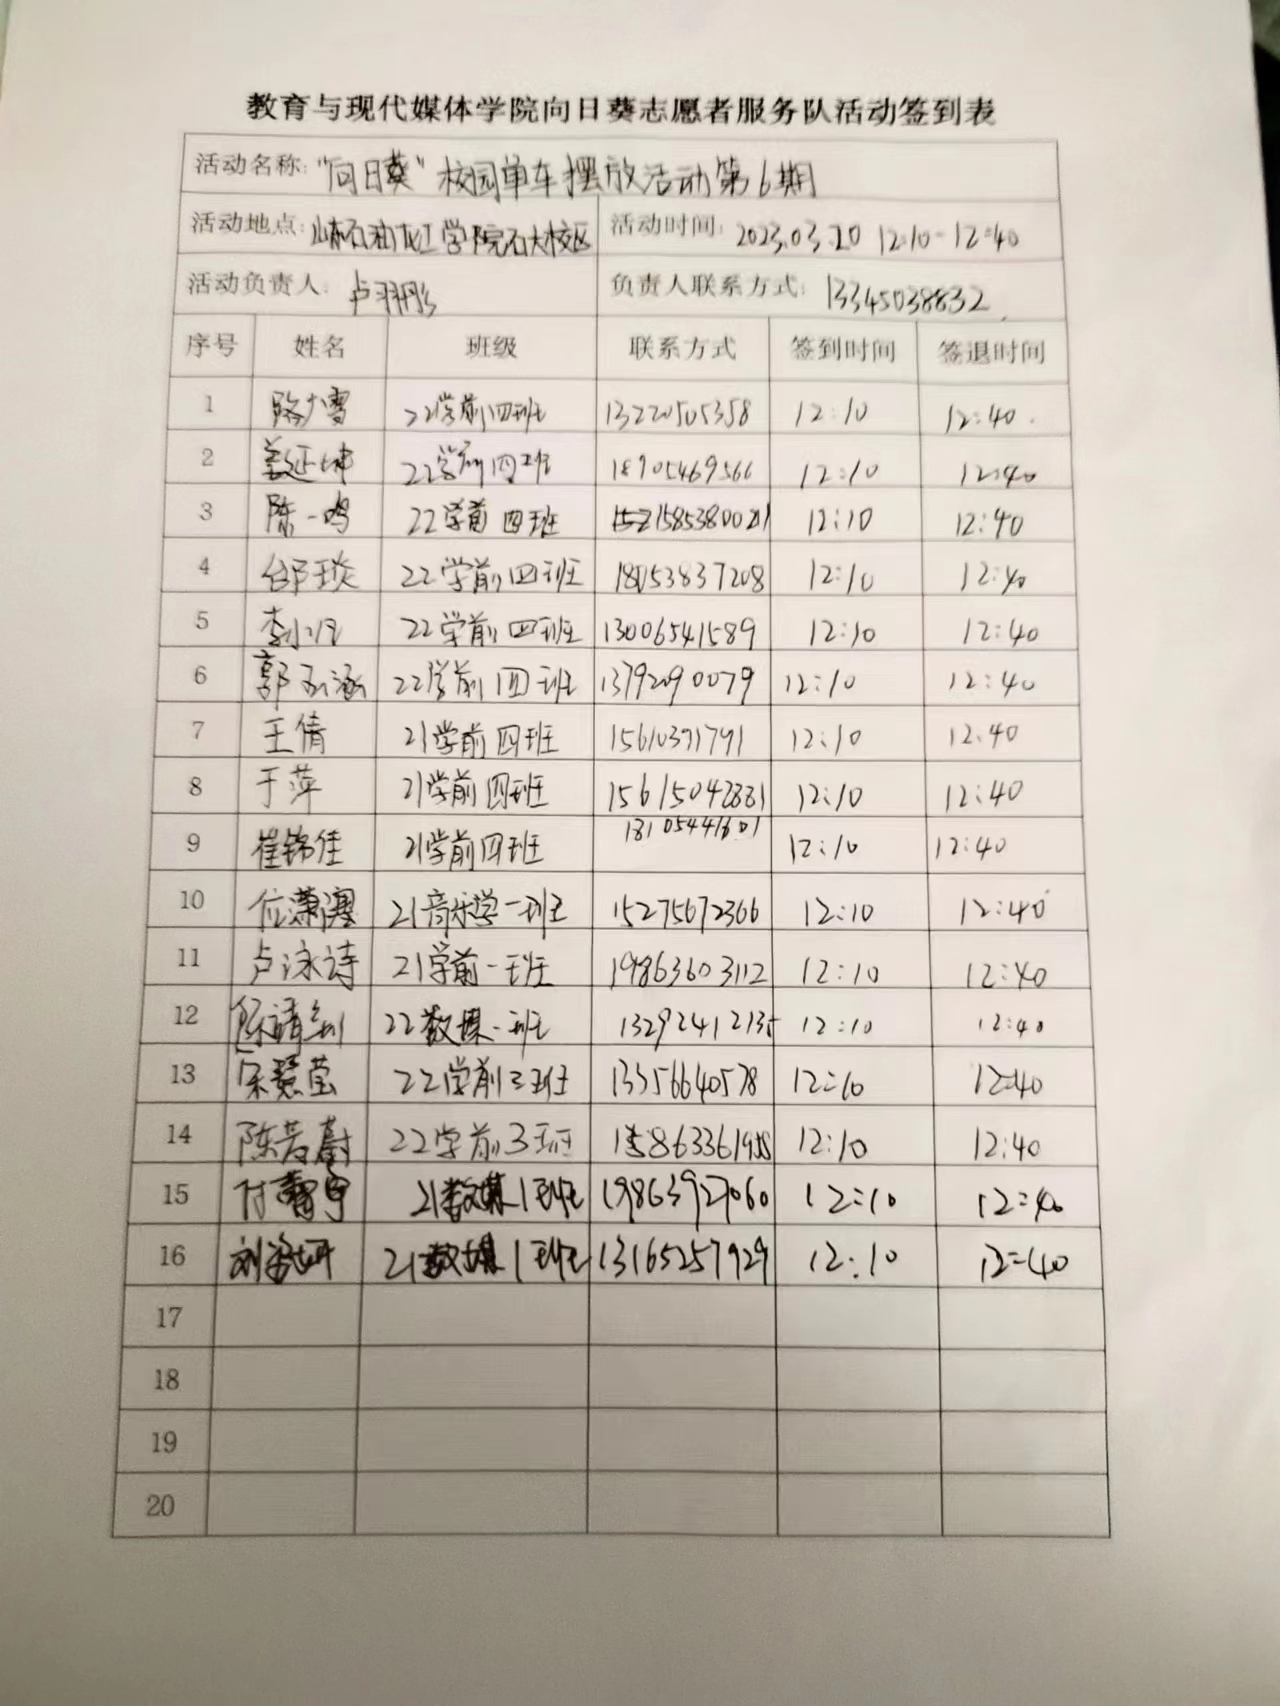 教育与现代媒体学院向日葵志愿者服务队活动签到表
活动名称:"向日葵"校园单车摆放活动第6期
活动地点:山东石油化工学院石大校区 活动时间:2023.03.20 12:10-12:40
活动负责人:卢羽彤 负责人联系方式:13345038832
序号 姓名 班级 联系方式 签到时间 签退时间
1 22学前四班 13220505358 12:10 12:40
2 姜延坤 22学前四班 18905469566 12:10 12:40
3 陈一鸣 22学前四班 12:10 12:40
4 邰琰 22学前四班 18053837208 12:10 12:40
5 22学前四班 13006541589 12:10 12:40
6 郭玉涵 22学前四班 13792090079 12:10 12:40
7 王倩 21学前四班 15610391791 12:10 12:40
8 于萍 21学前四班 12:10 12:40
9 崔锦佳 21学前四班 12:10 12:40
10 位潇 21音乐学一班 15275672366 12:10 12:40
11 卢泳诗 21学前一班 19863603112 12:10 12:40
12 22数媒一班 13292412135 12:10 12:40
13 宋慧莹 22学前3班 13356640578 12:10 12:40
14 陈芳蔚 22学前3班 12:10 12:40
15 21数媒1班 19863927060 12:10 12:40
16 21数媒1班 13165257929 12:10 12:40
17
18
19
20